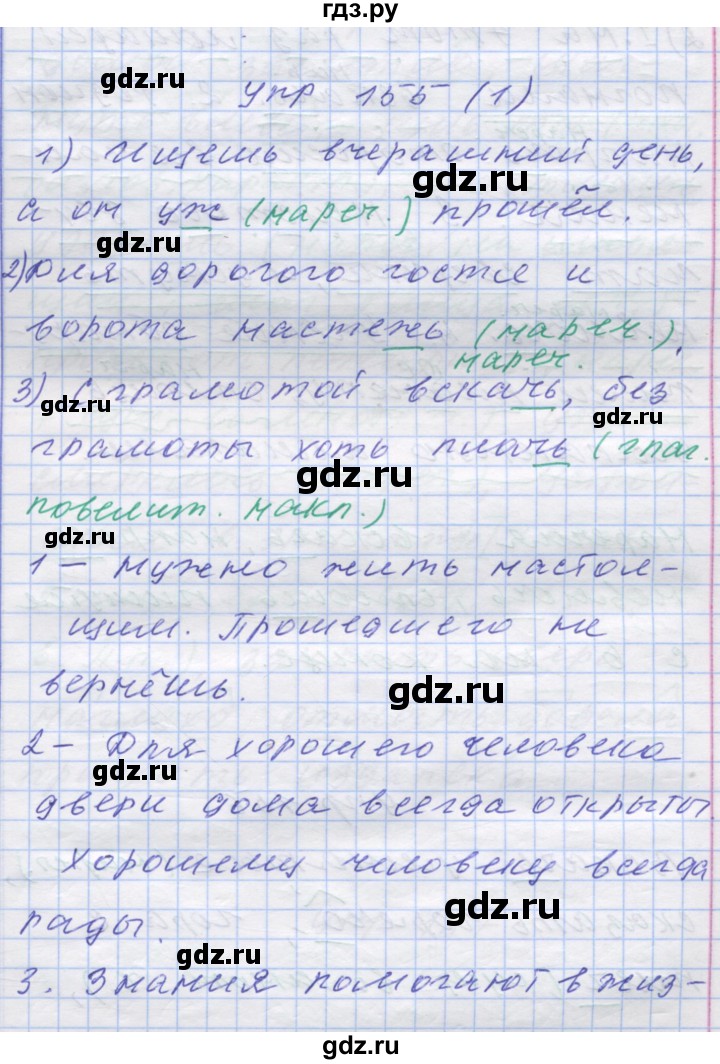 гдз.ру
gdz.ru
упр 155 (1)
1) Ищешь вчерашний день,
gdz.ru
а он уж (нареч.) прошёл.
gdz.ru
2) Для дорогого гостя и
ворота настежь (нареч.).
нареч.
3) С грамотой вскачь, без
gdz.ru
gdz.ru
грамоты хоть плачь (глаг.
gdz.ru
повелит. накл.)
gdz.ru
1 – Нужно жить настоя-
щим. Прошедшего не
вернёшь.
gdz.ru
2 – Для хорошего человека
gdz.ru
двери дома всегда открыты.
Хорошему человеку всегда
gdz.ru
рады.
gdz.ru
3. Знания помогают в жиз-
гдз.ру